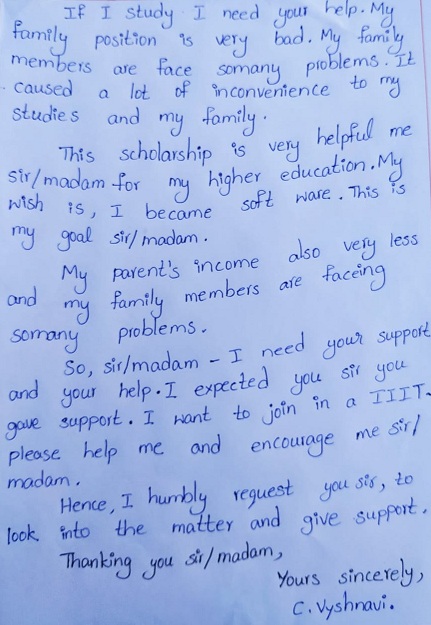 If I study I need your help. My
family position is very bad. My family
members are face somany problems. It
caused a lot of inconvenience to my
studies and my family.
This scholarship is very helpful me
sir/madam for my higher education. My
wish is, I became soft ware. This is
my goal sir/madam.
My parent's income also very less
and my family members are faceing
somany problems.
So, sir/madam - I need your support
and your help. I expected you sir you
gave support. I want to join in a IIIT.
please help me and encourage me sir/
madam.
Hence, I humbly request you sir, to
look into the matter and give support.
Thanking you sir/madam,
Yours sincerely,
C. Vyshnavi.